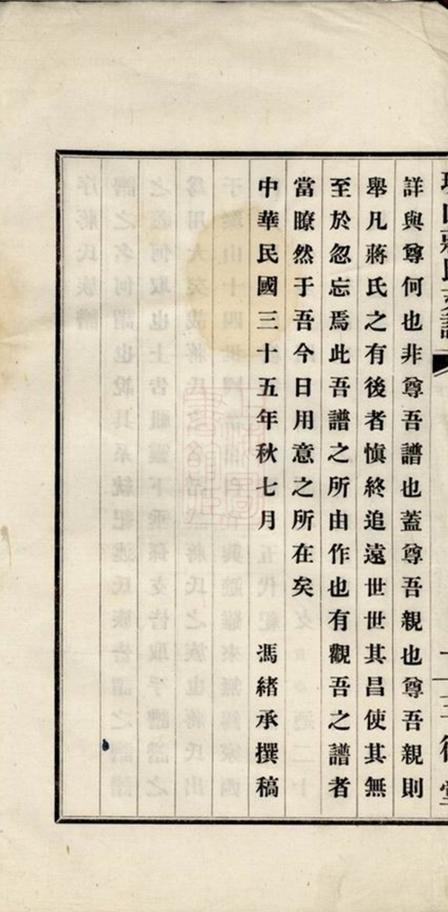 詳與尊何也非尊吾譜也蓋尊吾親也尊吾親則
舉凡蔣氏之有後者慎終追遠世世其昌使其無
至於忽忘焉此吾譜之所由作也有觀吾之譜者
當瞭然于吾今日用意之所在矣
中華民國三十五年秋七月 馮緒承撰稿